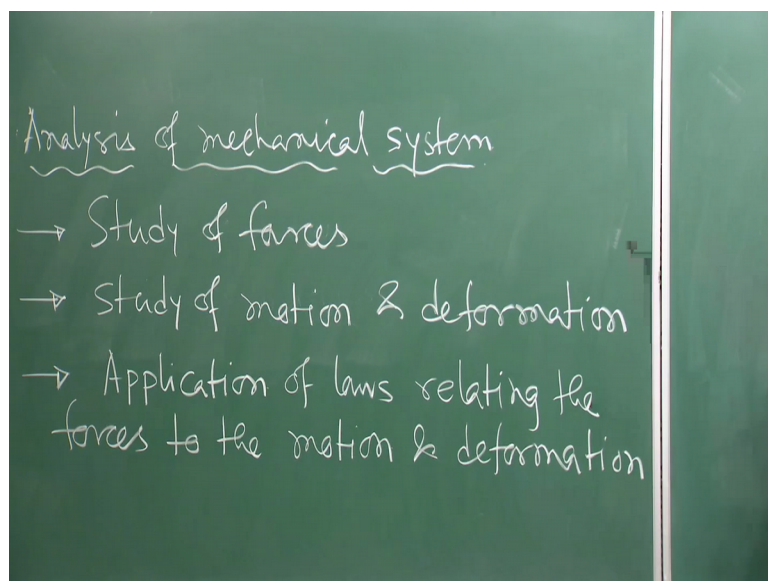 Analysis of mechanical system
→ Study of forces
→ Study of motion & deformation
→ Application of laws relating the
forces to the motion & deformation